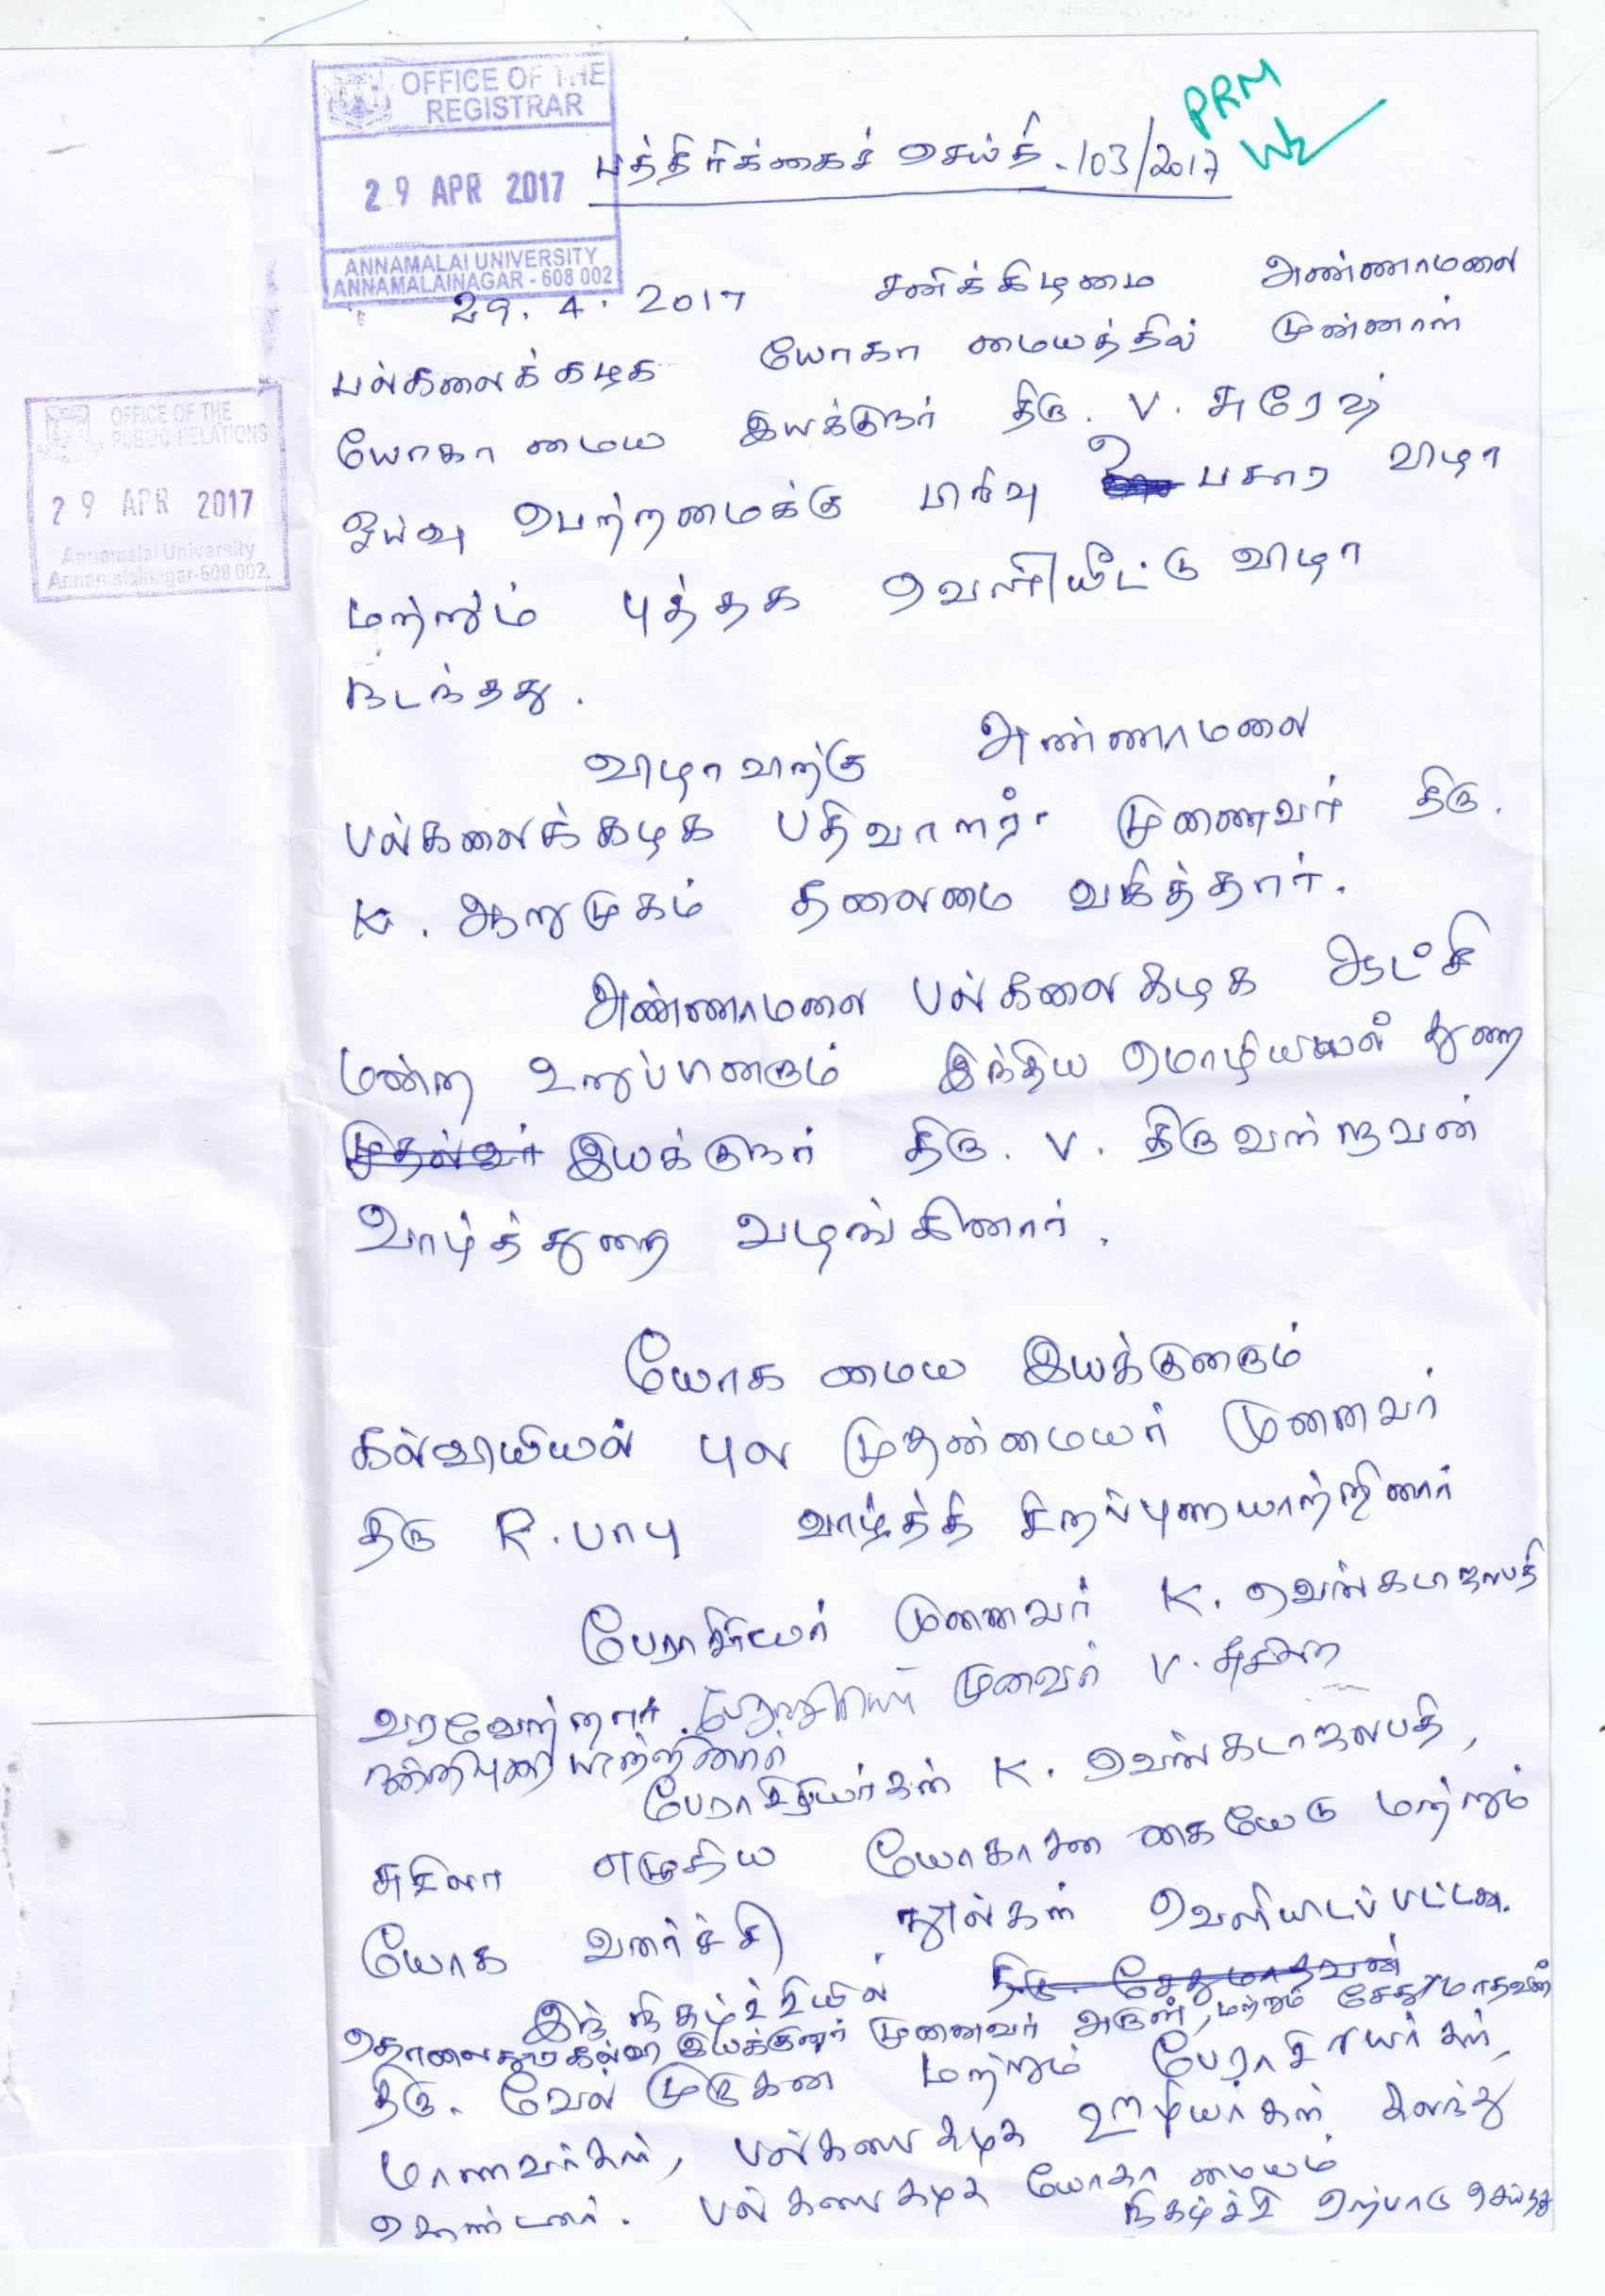 OFFICE OF THE
REGISTRAR
29 APR 2017
ANNAMALAI UNIVERSITY
ANNAMALAINAGAR - 608 002
PRM
பத்திரிக்கைச் செய்தி - 103/2017
OFFICE OF THE
PUBLIC RELATIONS
29 APR 2017
Annamalai University
Annamalainagar-608 002
29.4.2017 சனிக்கிழமை அண்ணாமலை
பல்கலைக்கழக யோகா மையத்தில் முன்னாள்
யோகா மைய இயக்குநர் திரு. V. சுரேஷ்
ஓய்வு பெற்றமைக்கு பிரிவு உபசார விழா
மற்றும் புத்தக வெளியீட்டு விழா
நடந்தது.
விழாவிற்கு அண்ணாமலை
பல்கலைக்கழக பதிவாளர் முனைவர் திரு.
K. ஆறுமுகம் தலைமை வகித்தார்.
அண்ணாமலை பல்கலைகழக ஆட்சி
மன்ற உறுப்பினரும் இந்திய மொழியியல் துறை
முதல்வர் இயக்குநர் திரு. V. திருவள்ளுவன்
வாழ்த்துரை வழங்கினார்.
யோக மைய இயக்குனரும்
கல்வியியல் புல முதன்மையர் முனைவர்
திரு R. பாபு வாழ்த்தி சிறப்புரையாற்றினார்
பேராசிரியர் முனைவர் K. வெங்கடாஜலபதி
வரவேற்றார். பேராசிரியர் முனைவர் V. சுசிலா
நன்றியுரையாற்றினார்
பேராசிரியர்கள் K. வெங்கடாஜலபதி,
சுசிலா எழுதிய யோகாசன கையேடு மற்றும்
யோக வளர்ச்சி நூல்கள் வெளியிடப்பட்டன.
இந் நிகழ்ச்சியில் திரு. சேதுமாதவன்
தொலைதூரகல்வி இயக்குனர் முனைவர் அருள், மற்றும் சேதுமாதவன்
திரு. வேல் முருகன் மற்றும் பேராசிரியர்கள்,
மாணவர்கள், பல்கலைகழக ஊழியர்கள் கலந்து
கொண்டனர். பல்கலைகழக யோகா மையம்
நிகழ்ச்சி ஏற்பாடு செய்தது